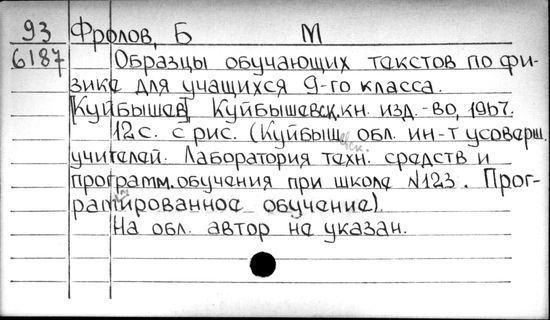 93 Фролов, Б М
6187 Образцы обучающих текстов по фи-
зике для учащихся 9-го класса.
[Куйбышев], Куйбышевск.кн. изд.-во, 1967.
12 с. с рис. (Куйбышевск. обл. ин-т усоверш.
учителей. Лаборатория техн. средств и
программ. обучения при школе №123. Прог-
раммированное обучение).
На обл. автор не указан.